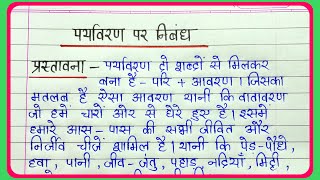 पर्यावरण पर निबंध
प्रस्तावना – पर्यावरण दो शब्दों से मिलकर
बना है - परि + आवरण । जिसका
मतलब है ऐसा आवरण यानी कि वातावरण
जो हमें चारों ओर से घेरे हुए है। इसमें
हमारे आस - पास की सभी जीवित और
निर्जीव चीजें शामिल हैं। यानी कि पेड़-पौधे,
हवा , पानी , जीव- जंतु , पहाड़ , नदियाँ , मिट्टी ,